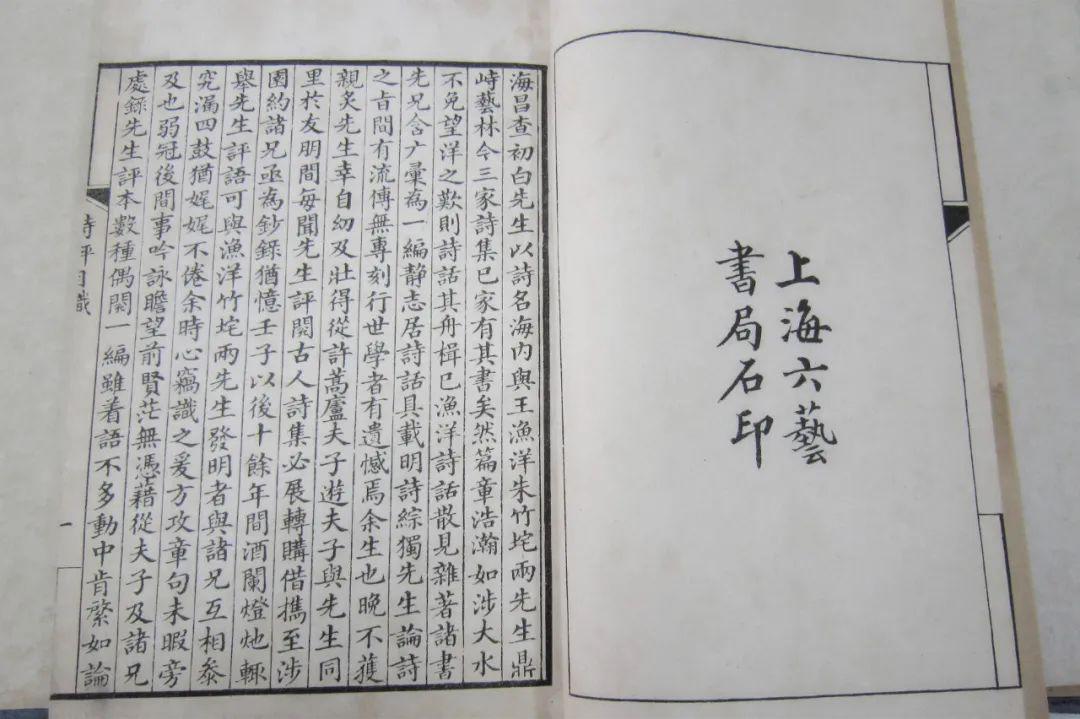 上海六藝
書局石印
海昌查初白先生以詩名海内與王漁洋朱竹垞兩先生鼎
峙藝林今三家詩集已家有其書矣然篇章浩瀚如涉大水
不免望洋之歎則詩話其舟楫已漁洋詩話散見雜著諸書
先兄含广彙為一編静志居詩話具載明詩綜獨先生論詩
之旨間有流傳無專刻行世學者有遺憾焉余生也晚不獲
親炙先生幸自幼及壯得從許蒿廬夫子遊夫子與先生同
里於友朋間每聞先生評閱古人詩集必展轉購借攜至涉
園約諸兄亟為鈔錄猶憶壬子以後十餘年間酒闌燈灺輒
舉先生評語可與漁洋竹垞兩先生發明者與諸兄互相叅
究漏四鼓猶娓娓不倦余時心竊識之爰方攻章句未暇旁
及也弱冠後間事吟詠瞻望前賢茫無憑藉從夫子及諸兄
處錄先生評本數種偶閱一編雖着語不多動中肯綮如論
詩評目識
一